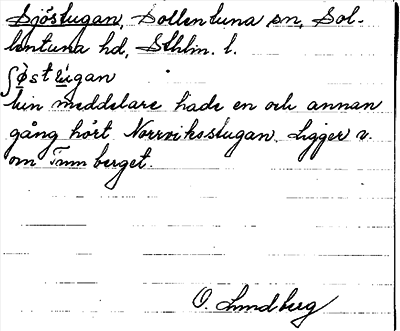 Sjöstugan, Sollentuna sn, Sol-
lentuna hd, Sthlm. l.
ʃøstugan
Min meddelare hade en och annan
gång hört Norrviksstugan. Ligger v.
om Tunberget.
O. Lundberg